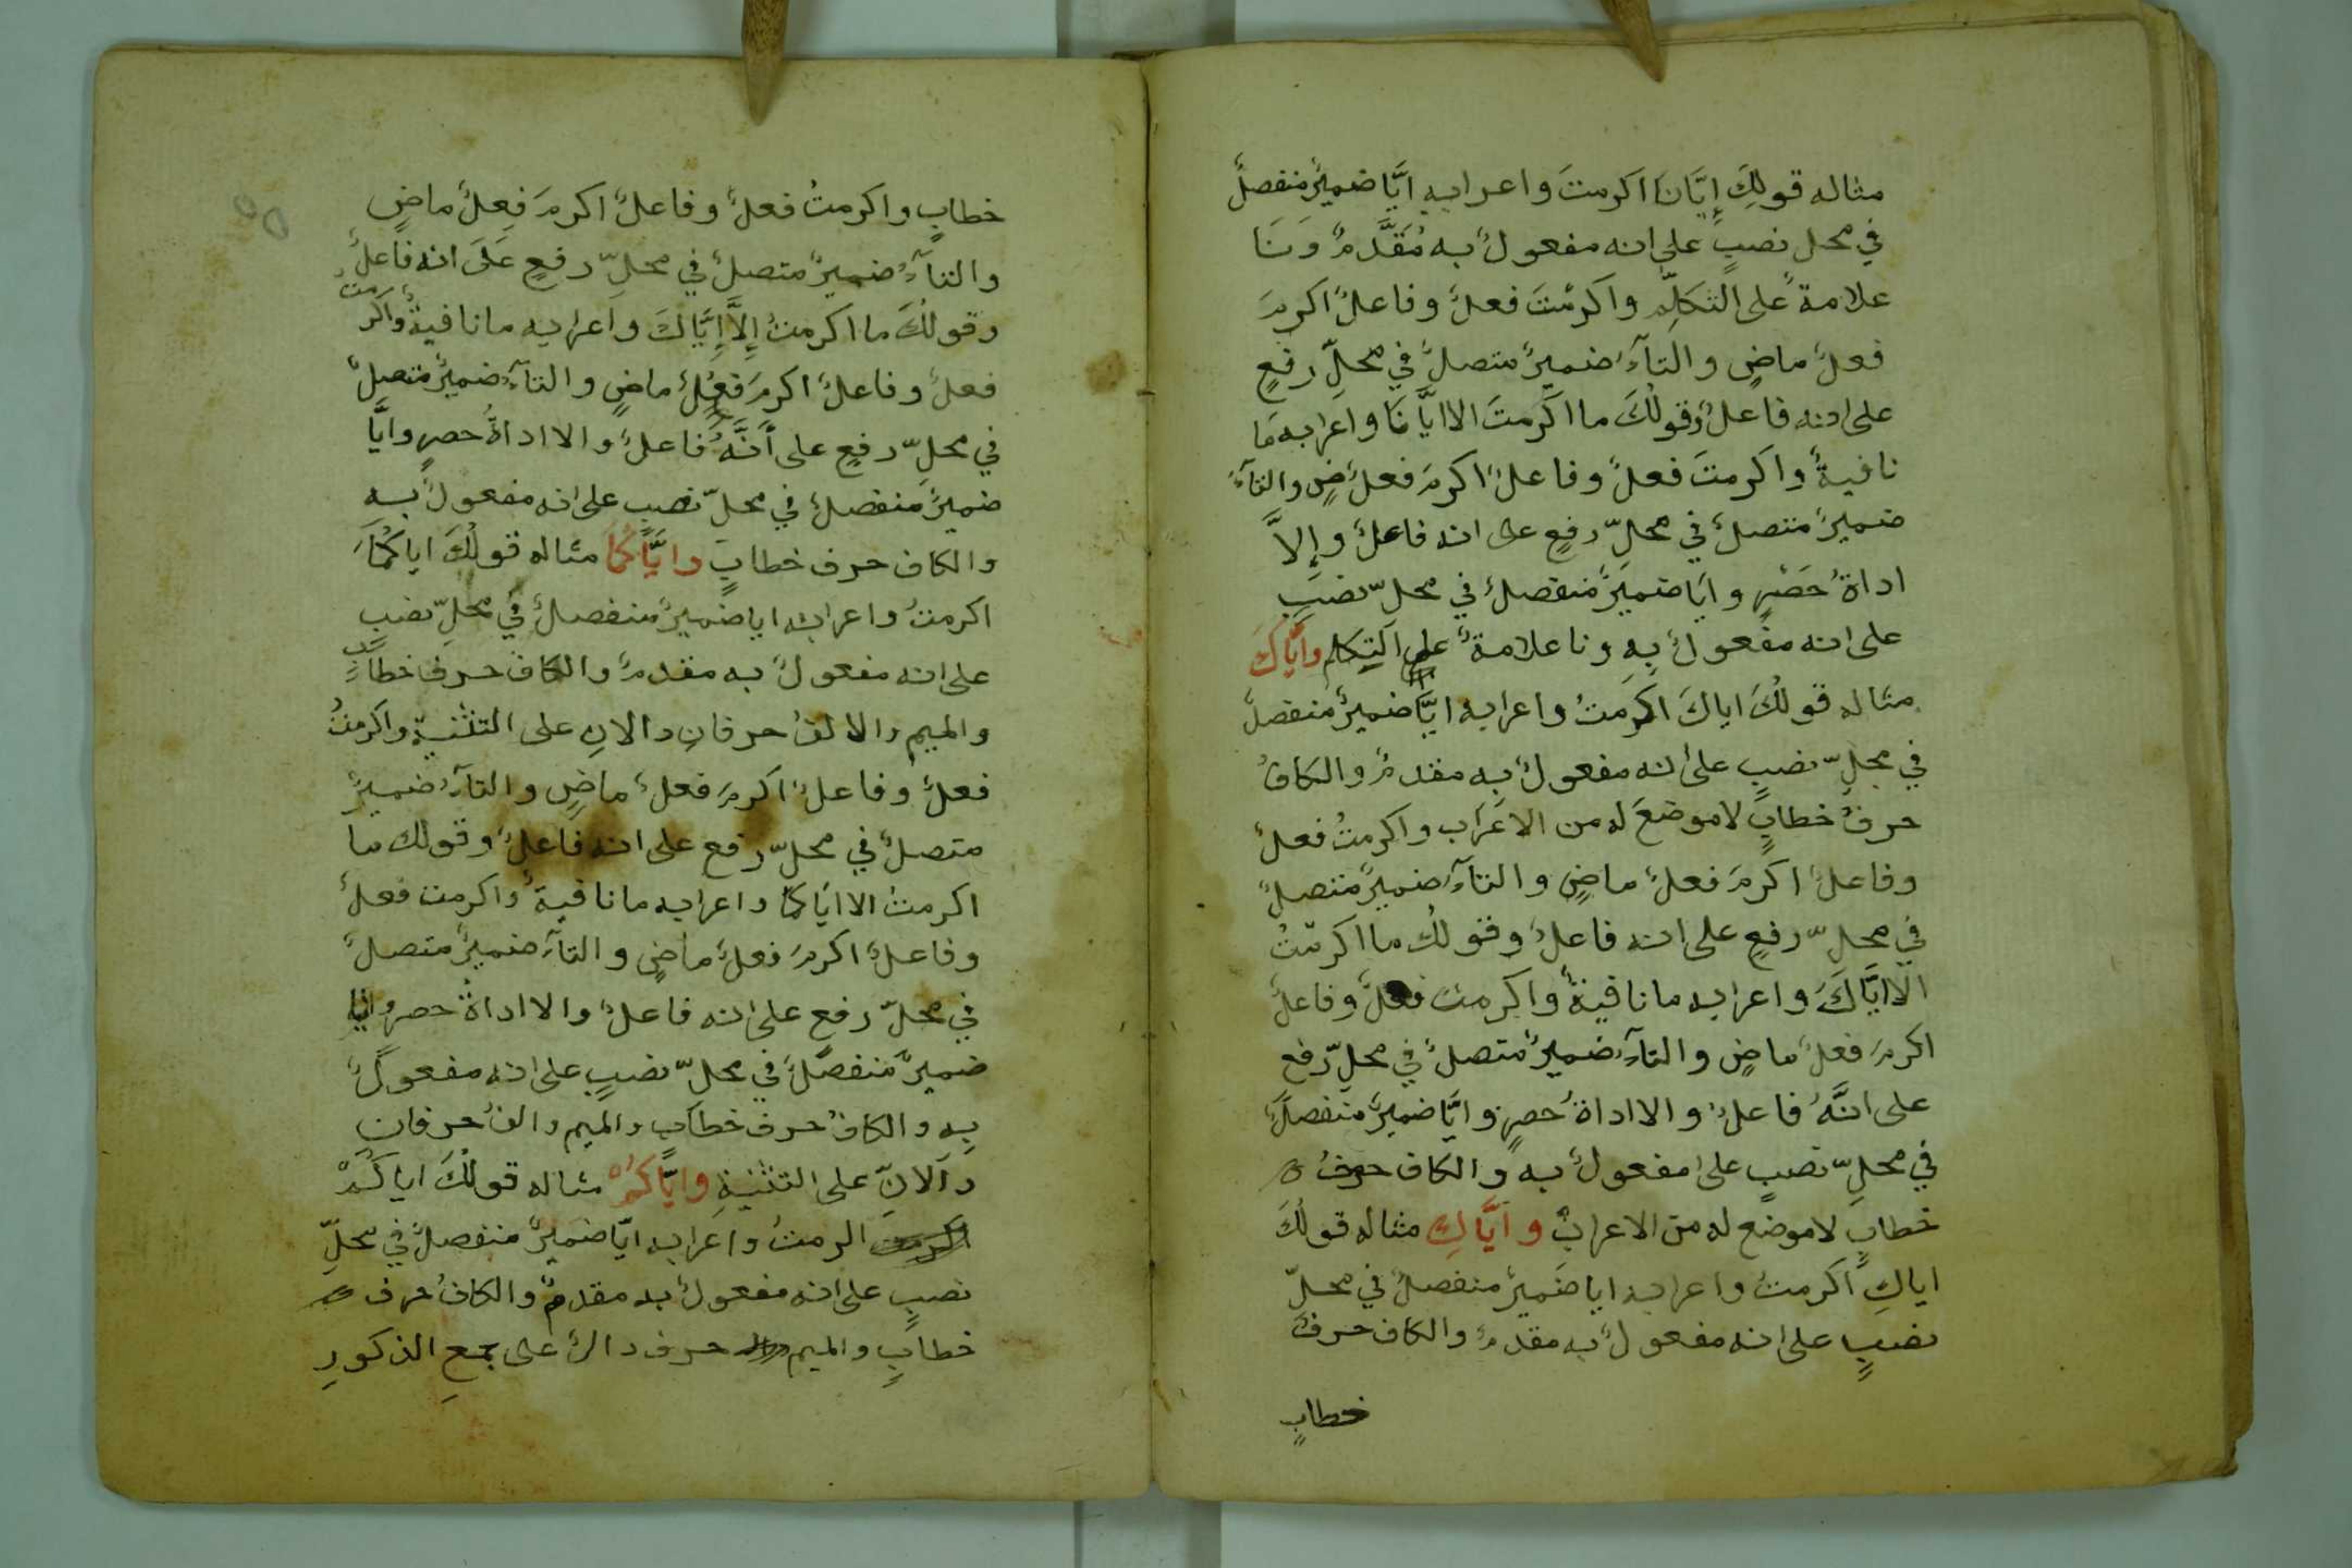 مثاله قولكَ إيَّانَا اكرمتَ واعرابه ايَّا ضميرٌ منفصلٌ
في محل نصبٍ على انه مفعولٌ به مُقَدَّمٌ وَنَا
علامةٌ على التكلِّم واكرمْتَ فعلٌ وفاعلٌ اكرمَ
فعلٌ ماضٍ والتآءُ ضميرٌ متصلٌ في محلِّ رفعٍ
على انه فاعلٌ وقولُكَ ما اكرمتَ الا ايَّانَا واعرابه مَا
نافيةٌ واكرمتَ فعلٌ وفاعلٌ اكرمَ فعلٌ ضٍ والتآءُ
ضميرٌ متصلٌ في محلِّ رفعٍ على انه فاعلٌ وإلاَّ
اداةُ حَصْرٍ وايَا ضميرٌ منفصلٌ في محلِّ نصبٍ
على انه مفعولٌ بِهِ ونا علامةٌ على التكلم وايَّاكَ
مثاله قولُكَ اياكَ اكرمتُ واعرابه ايَّا ضميرٌ منفصلٌ
في محلِّ نصبٍ على انه مفعولٌ به مقدمٌ والكافُ
حرفُ خطابٍ لا موضعَ له من الاعرَاب واكرمتُ فعلٌ
وفاعلٌ اكرمَ فعلٌ ماضٍ والتآءُ ضميرٌ متصلٌ
في محلِّ رفعٍ على انه فاعلٌ وقولُكَ ما اكرمتُ
الا ايَّاكَ واعرابه ما نافيةٌ واكرمت فعلٌ وفاعلٌ
اكرمَ فعلٌ ماضٍ والتآءُ ضميرٌ متصلٌ في محلِّ رفع
على انَّهُ فاعلٌ والا اداةُ حصرٍ وايَّا ضميرٌ منفصلٌ
في محلِّ نصبٍ على مفعولٌ به والكاف حرفُ
خطابٍ لا موضع له من الاعراب وايَّاكِ مثاله قولُكَ
اياكِ اكرمتُ واعرابه ايا ضميرٌ منفصلٌ في محلِّ
نصبٍ على انه مفعولٌ به مقدمٌ والكاف حرفُ
خطابٍ
خطابٍ واكرمتُ فعلٌ وفاعلٌ اكرمَ فِعلٌ ماضٍ
والتآءُ ضميرٌ متصلٌ في محلِّ رفعٍ عَلَى انه فاعلٌ
وقولُكَ ما اكرمتُ إلاَّ إيَّاكَ واعرابه ما نافيةٌ واكرمت
فعلٌ وفاعلٌ اكرمَ فعلٌ ماضٍ والتآءُ ضميرٌ متصلٌ
في محلِّ رفعٍ على أنَّهُ فاعلٌ والا اداةُ حصرٍ وايَّا
ضميرٌ منفصلٌ في محلِّ نصبٍ على انه مفعولٌ به
والكاف حرف خطابٍ وايَّاكُمَا مثاله قولُكَ اياكُمَا
اكرمتُ واعرابه ايا ضميرٌ منفصلٌ في محلِّ نصبٍ
على انه مفعولٌ به مقدمٌ والكاف حرف خطابٍ
والميم والالفُ حرفانِ دالانِ على التثنيةِ واكرمتُ
فعلٌ وفاعلٌ اكرمَ فعلٌ ماضٍ والتآءُ ضميرٌ
متصلٌ في محلِّ رفع على انه فاعلٌ وقولك ما
اكرمتُ الا اياكما واعرابه ما نافيةٌ واكرمت فعلٌ
وفاعلٌ اكرمَ فعلٌ ماضٍ والتآءُ ضميرٌ متصلٌ
في محلِّ رفعٍ على انه فاعلٌ والا اداةُ حصرٍ وايا
ضميرٌ منفصلٌ في محلِّ نصبٍ على انه مفعولٌ
بِه والكافُ حرف خطابٍ والميم والفُ حرفان
دالانِ على التثنيةِ وايَّاكُمْ مثاله قولُكَ اياكُمْ
اكرمتُ اكرمتُ واعرابه ايَّا ضميرٌ منفصلٌ في محلِّ
نصبٍ على انه مفعولٌ به مقدمٌ والكافُ حرف
خطابٍ والميم حرف دالٌ على جمعِ الذكورِ